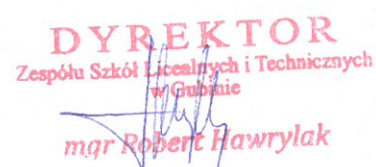 DYREKTOR
Zespołu Szkół Licealnych i Technicznych
w Gubinie
mgr Robert Hawrylak